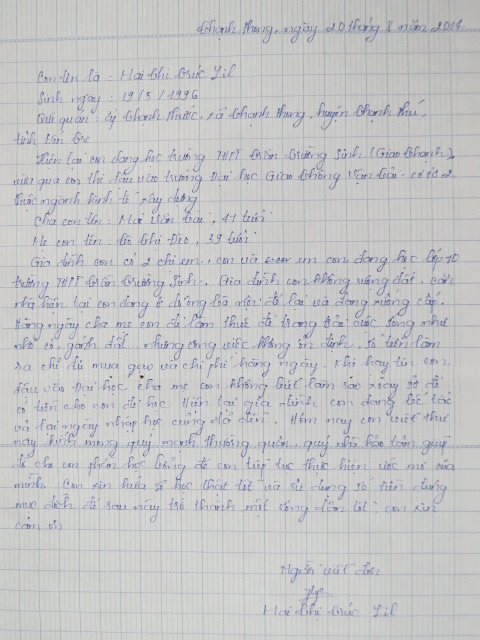 Thạnh Phong, ngày 20 tháng 8 năm 2014
Con tên là : Mai Thị Trúc Lil
Sinh ngày : 19/5/1996
Quê quán : ấp Thạnh Phước, xã Thạnh Phong, huyện Thạnh Phú,
tỉnh Bến Tre
Hiện tại con đang học trường THPT Trần Trường Sinh (Giao Thạnh),
vừa qua con thi đậu vào trường Đại học Giao Thông Vận Tải - cơ sở 2
thuộc ngành kinh tế xây dựng
Cha con tên : Mai Văn , 41 tuổi
Mẹ con tên : Thị Đèo , 39 tuổi
Gia đình con có 2 chị em, con và em con đang học lớp 10
trường THPT Trần Trường Sinh. Gia đình con không ruộng đất, căn
nhà hiện tại con đang ở do ông bà nội để lại và đang xuống cấp.
Hằng ngày cha mẹ con đi làm thuê để trang trải cuộc sống như
nhổ cỏ, gánh đất. nhưng công việc không ổn định, số tiền làm
ra chỉ đủ mua gạo và chi phí hằng ngày. Khi hay tin con
đậu vào Đại học, cha mẹ con không biết làm sao xoay sở để
có tiền cho con đi học. Hiện tại gia đình con đang bế tắc
và lại ngày nhập học cũng đã đến. Hôm nay con viết thư
này kính mong quý mạnh thường quân, quý nhà hảo tâm giúp
đỡ cho con phần học bổng để con tiếp tục thực hiện ước mơ của
mình. Con xin hứa sẽ học thật tốt và sử dụng số tiền đúng
mục đích để sau này trở thành một công dân tốt. con xin
cảm ơn
Người viết đơn
Mai Thị Trúc Lil